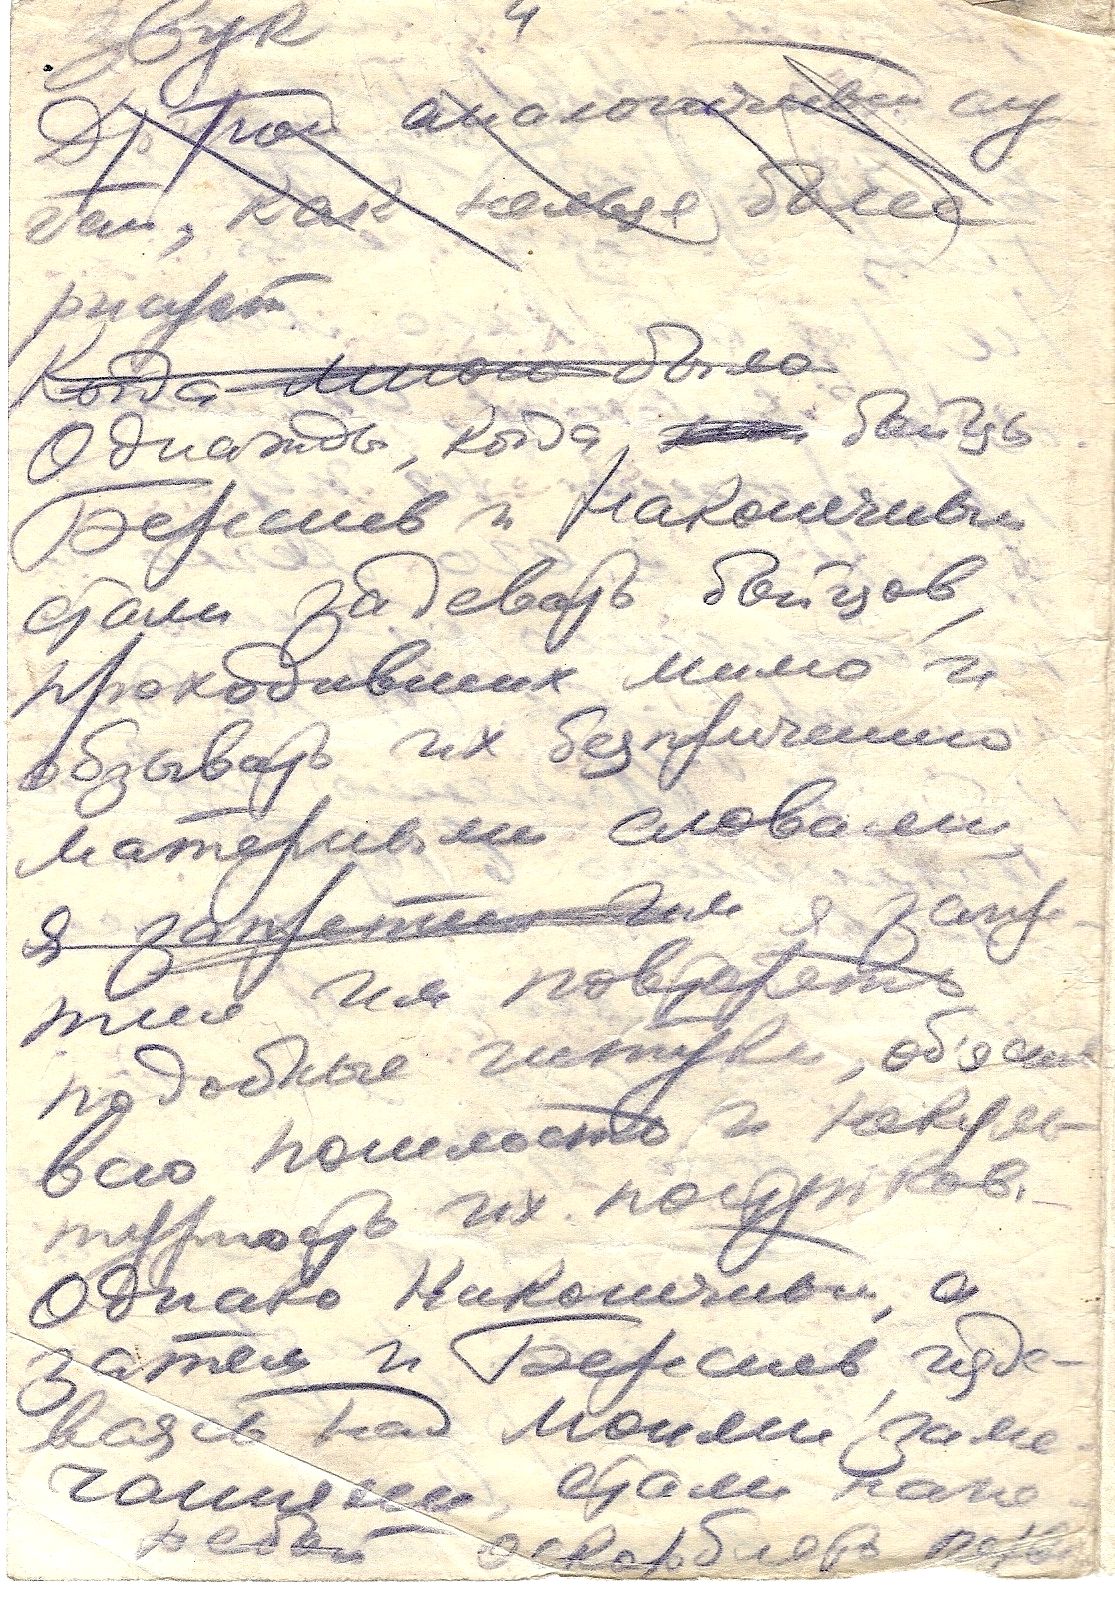 звук 4
Другой аналогичный слу
чай, как нельзя более
рисует
Когда было
Однажды, когда бойцы
Берснев и Наконечный
стали задевать бойцов,
проходивших мимо и
обзывать их безпричинно
матерными словами,
я запретил им я запре-
тил им повторять
подобные штуки, об'яснив
всю пошлость и некуль-
турность их поступков.
Однако Наконечный, а
затем и Берснев, изде-
ваясь над моими заме-
чаниями, стали напе-
ребой оскорблять